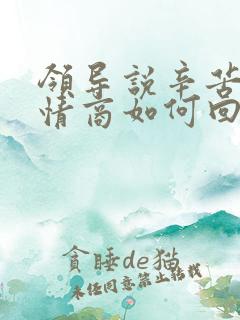 領导説辛苦
情商如何回
貪睡de猫
未经同意禁止搭载